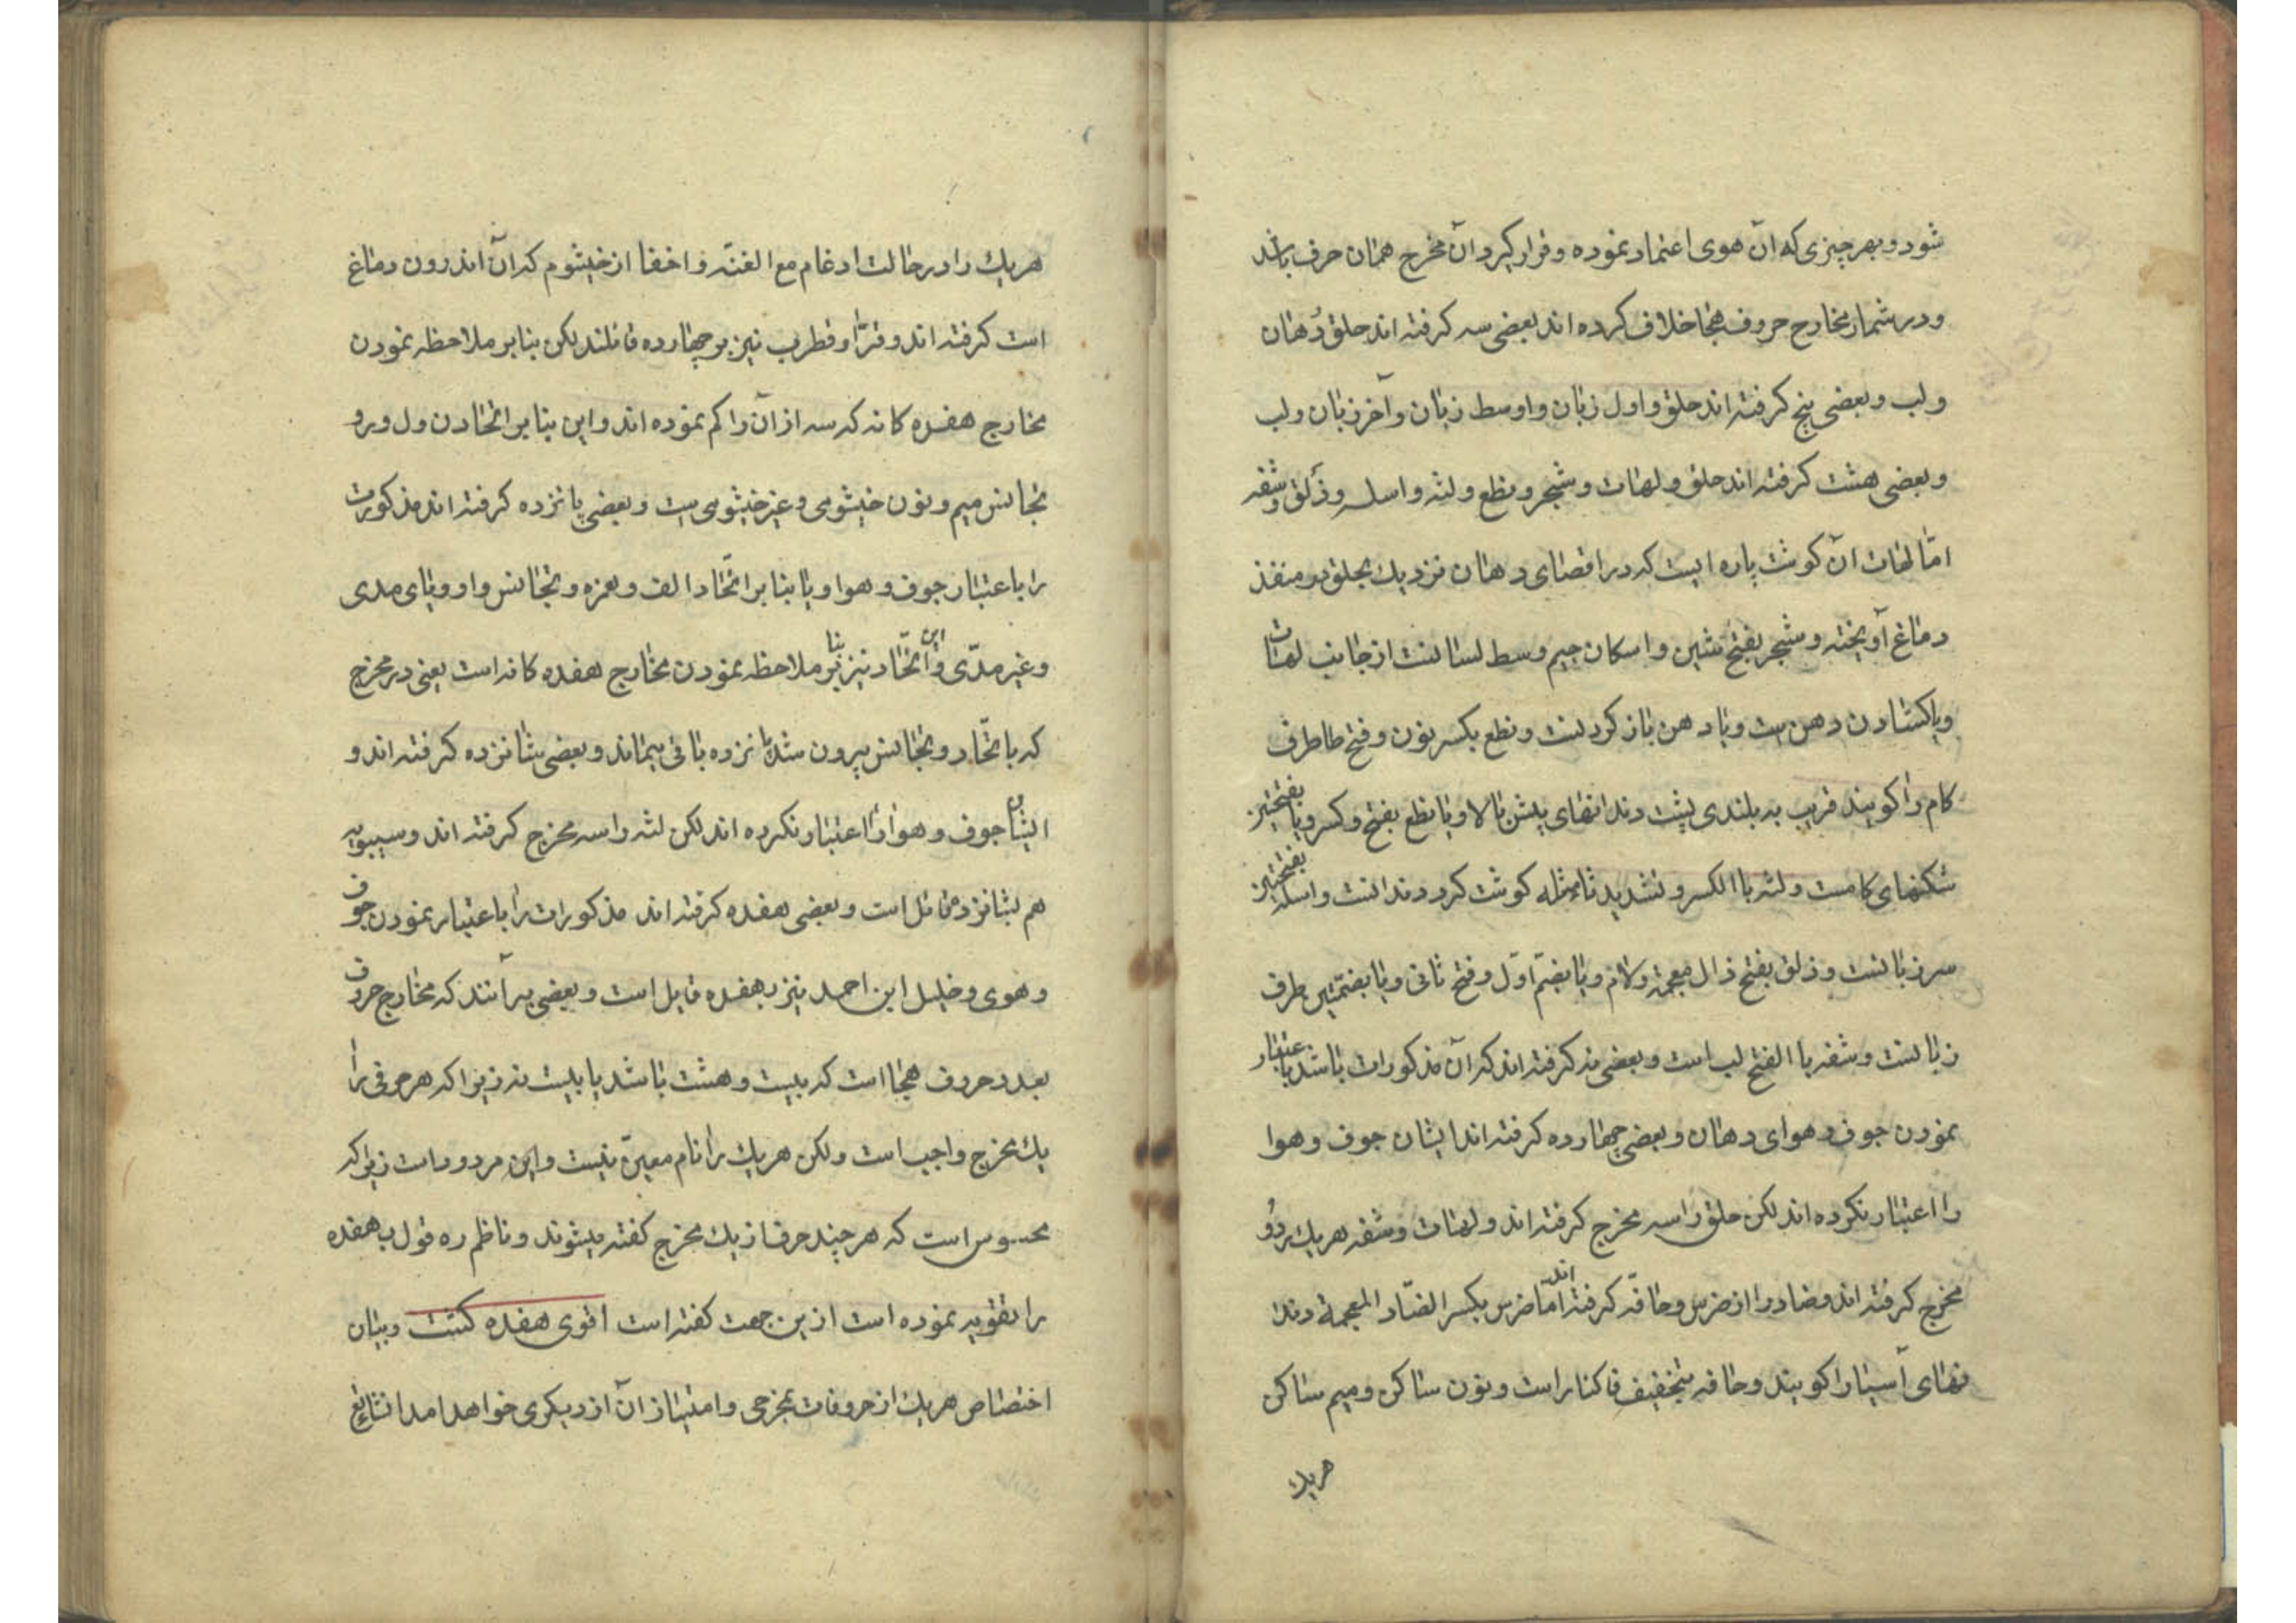 شود و بهر چیزی که آن هوی اعتماد نموده و قرار کیرد آن مخرج همان حرف باشد
و در شمار مخارج حروف هجا خلاف کرده اند بعضی سه کرفته اند حلق دُهان
و لب و بعضی پنج کرفته اند حلق و اول زبان و اوسط زبان و آخر زبان و لب
و بعضی هشت کرفته اند حلق و لهات و شجر و نطع و لثه و اسله و ذَلق و شفه
امّا لهات آن کوشت پاره ایست که در اقصای دهان نزدیك بحلق بر منفذ
دماغ آویخته و شجر بفتح شین و اسکان جیم وسط لسانست از جانب لهات
و یا کشادن دهن ست و یا دهن باز کردنست و نطع بکسر نون و فتح طا طرف
کام را کویند قریب به بلندی پشت دندانهای پیش بالا و یا نطع بفتح و کسر و یا بفتحتین
شکنهای کامست و لثه باالکسر و تشدید ثا مثله کوشت کرد دندانست و اسله بفتحتین
سر زبانست و ذلق بفتح ذال معجمة و لام و یا بضمّ اوّل و فتح ثانی و یا بضمّتین طرف
زبانست و شفه با الفتح لب است و بعضی نه کرفته اند که آن مذکورات باشد باعتبار
نمودن جوف و هوای دهان و بعضی چهارده کرفته اند ایشان جوف و هوا
را اعتبار نکرده اند لکن حلق را سه مخرج کرفته اند و لهات و شفه هر یك بر دُو
مخرج کرفته اند و ضاد را از ضرس و حافّه کرفته اند امّا ضرس بکسر الضّاد المعجمة دندا
نهای آسیا را کویند و حافه بتخفیف فا کنار است و نون ساکن و میم ساکن
هر یك
هر یك را در حالت ادغام مع الغنّه و اخفا از خیشوم که آن اندرون دماغ
است کرفته اند و فرّا و قطرب نیز بر چهارده قائلند لکن بنا بر ملاحظه نمودن
مخارج هفده کانه که سه از آن را کم نموده اند و این بنا بر اتحاد ن و ل و ر و
تجانس میم و نون خیشومی و غیر خیشومی ست و بعضی پانزده کرفته اند مذکورت
را باعتبار جوف و هوا و یا بنا بر اتّحاد الف و همزه و تجانس واو و یای مدی
و غیر مدّی و این اتّحاد نیز بنا بر ملاحظه نمودن مخارج هفده کانه است یعنی در مخرج
که باتّحاد و تجانس بیرون شد پانزده باقی بیماند و بعضی شانزده کرفته اند و
ایشان جوف و هوا را اعتبار نکرده اند لکن لثه را سه مخرج کرفته اند و سیبویه
هم بشانزده قائل است و بعضی هفده کرفته اند مذکورات را باعتبار نمودن جوف
و هوی و خلیل ابن احمد نیز بهفده قایل است و بعضی بر آنند که مخارج حروف
بعدد حروف هجا است که بیست و هشت باشد یا بیست نه زیرا که هر حرفی را
یك مخرج واجب است ولکن هر یك را نام معیّن نیست و این مردود است زیرا که
محسوس است که هر چند حرف از یك مخرج کفته میشوند و ناظم ره قول بهفده
را تقویه نموده است ازین جهت کفته است اقوی هفده کشت و بیان
اختصاص هر یك از حروفات بمخرجی و امتیاز آن از دیکری خواهد امد